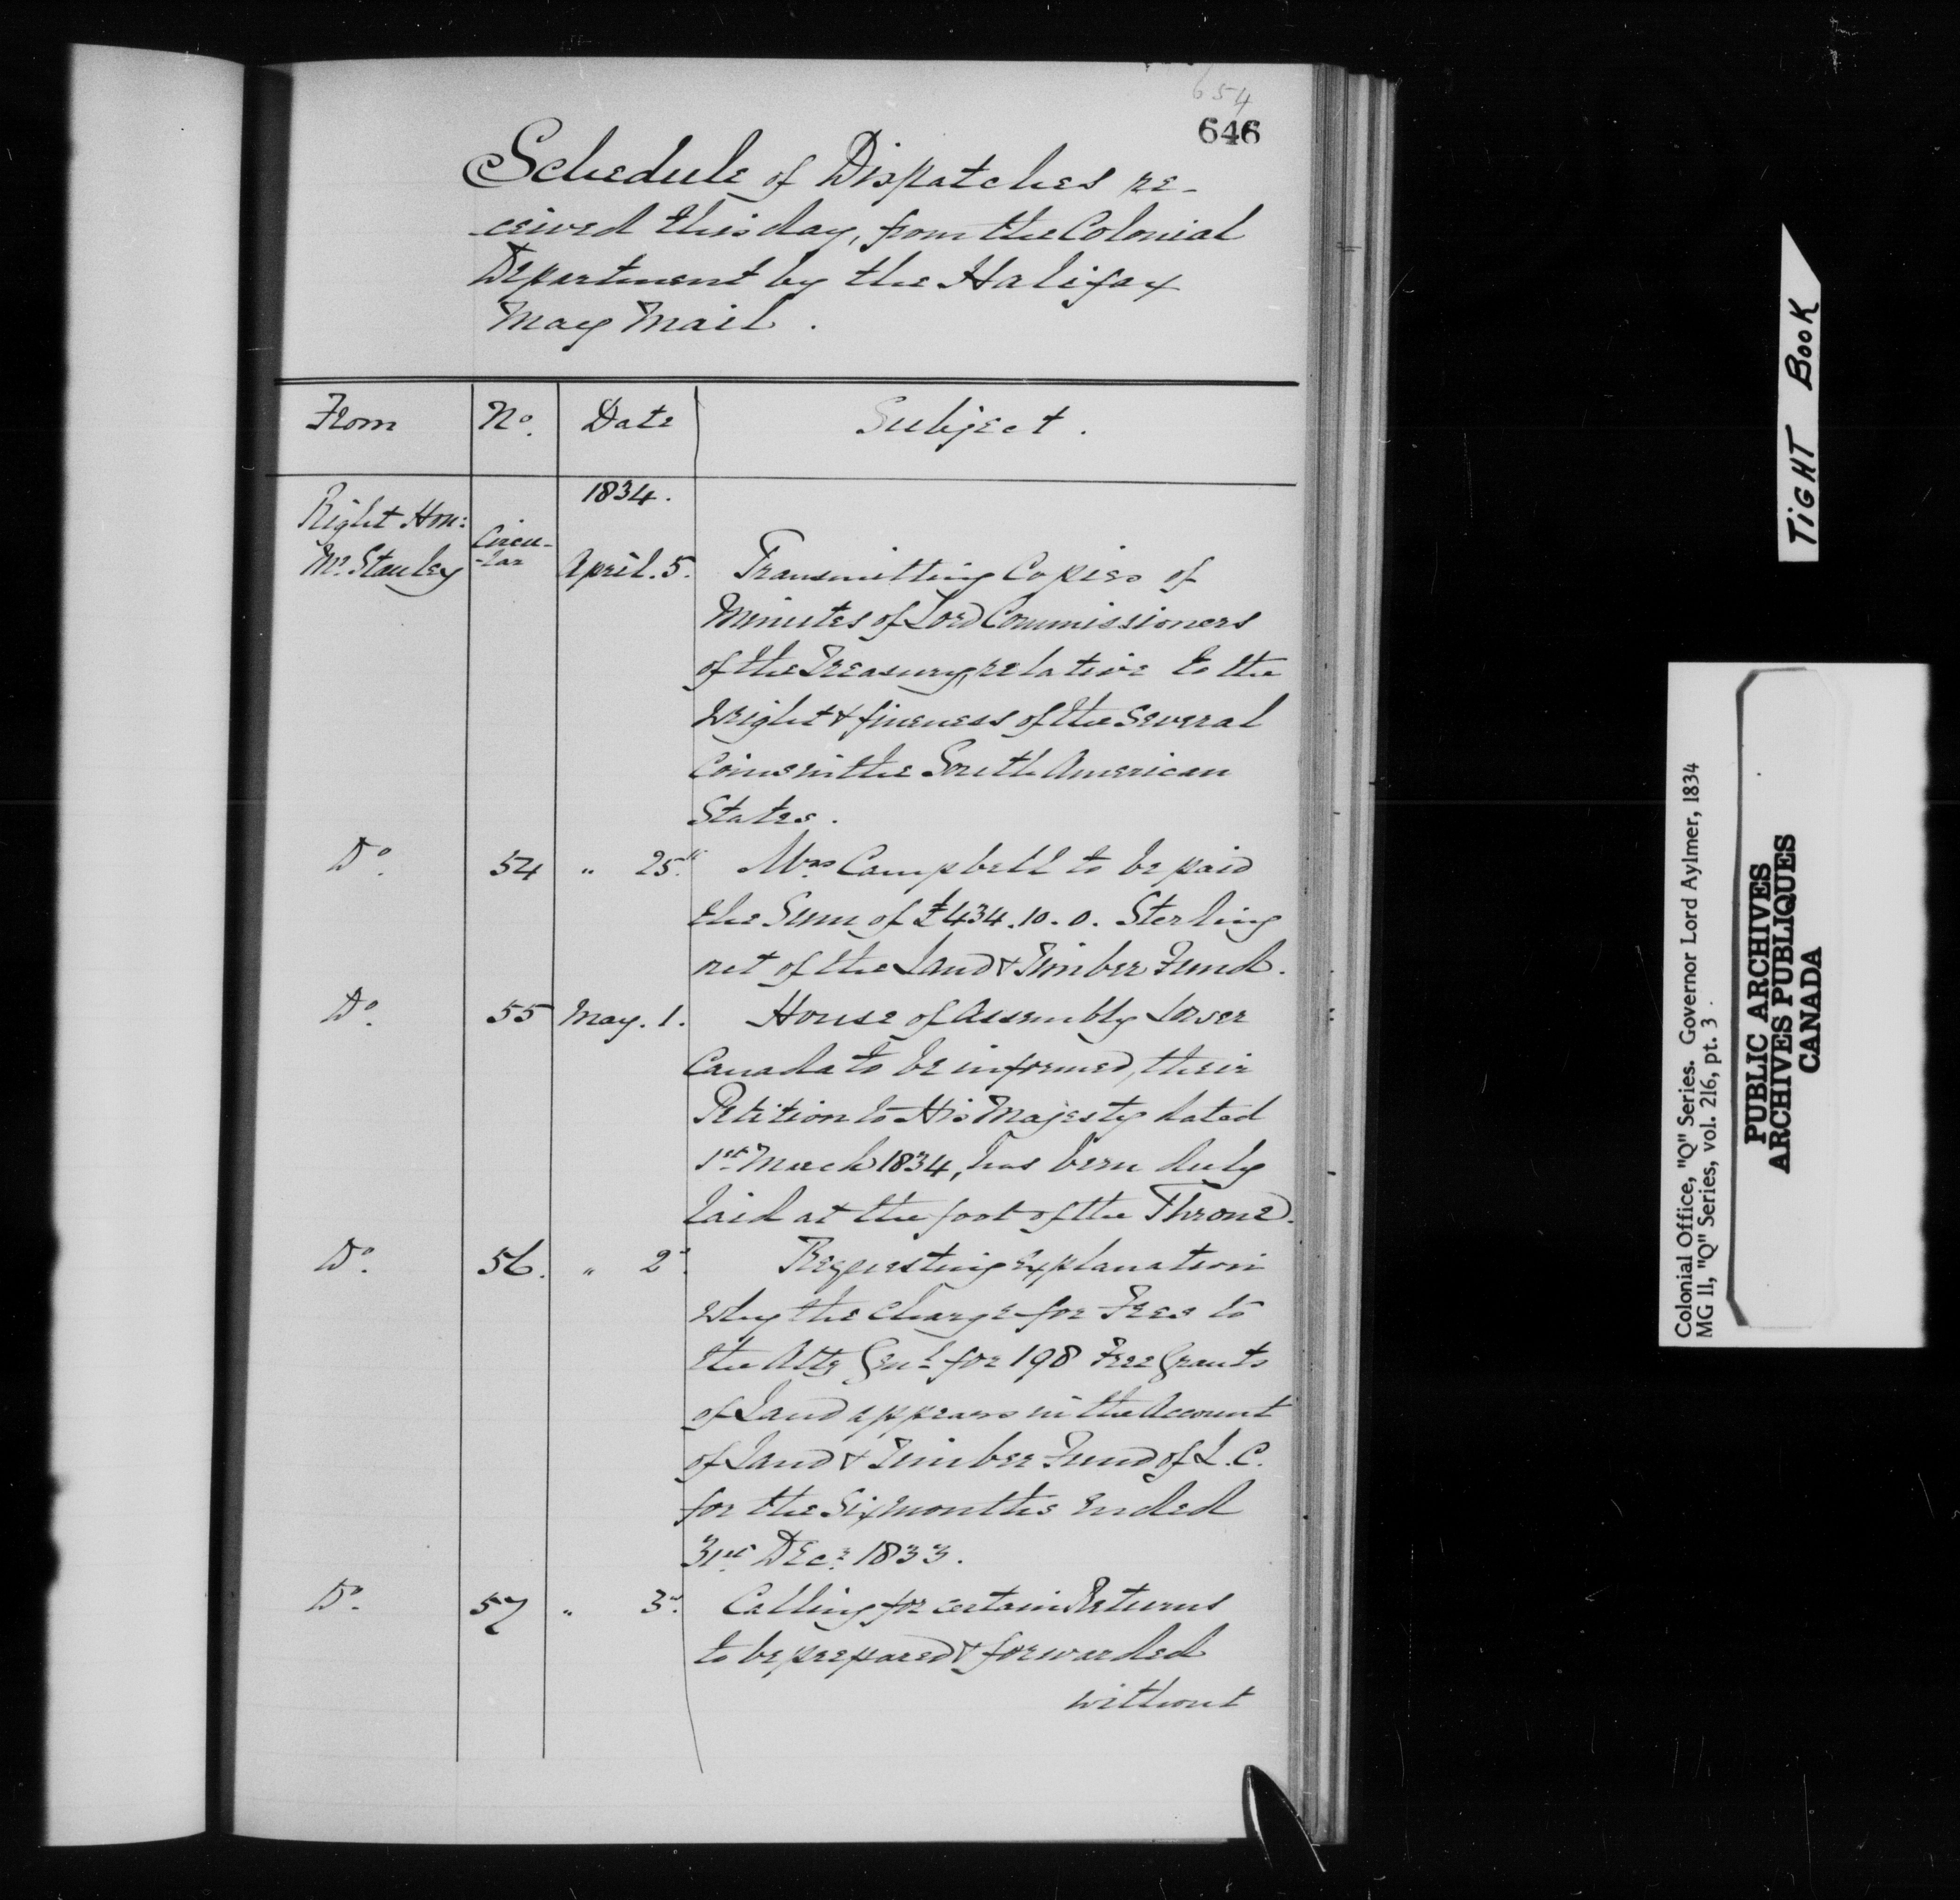 654
646
Schedule of Dispatches re-
ceived this day, from the Colonial
Department by the Halifax
May Mail.
From No. Date Subject.
1834.
Right Hon:
Mr. Stanley Circu-
-lar April. 5. Transmitting Copies of
Minutes of Lord Commissioners
of the Treasury, relative to the
Weight & fineness of the several
Coins in the South American
States.
Do. 54 " 25th. Mrs Campbell to be paid
the Sum of £434.10.0. Sterling
out of the Land & Timber Fund.
Do. 55 May. 1. House of Assembly Lower
Canada to be informed, their
Petition to His Majesty dated
1st March 1834, has been duly
laid at the foot of the Throne.
Do. 56. " 2d. Requesting explanation
why the charge for Fees to
the Atty Genl. for 198 Free Grants
of Land appears in the Account
of Land & Timber Fund of L.C.
for the Six months ended
31st. Decr. 1833.
Do. 57 " 3d. Calling for certain Returns
to be prepared & forwarded
without
TIGHT BOOK
Colonial Office, "Q" Series. Governor Lord Aylmer, 1834
MG 11, "Q" Series, vol. 216, pt. 3.
PUBLIC ARCHIVES
ARCHIVES PUBLIQUES
CANADA